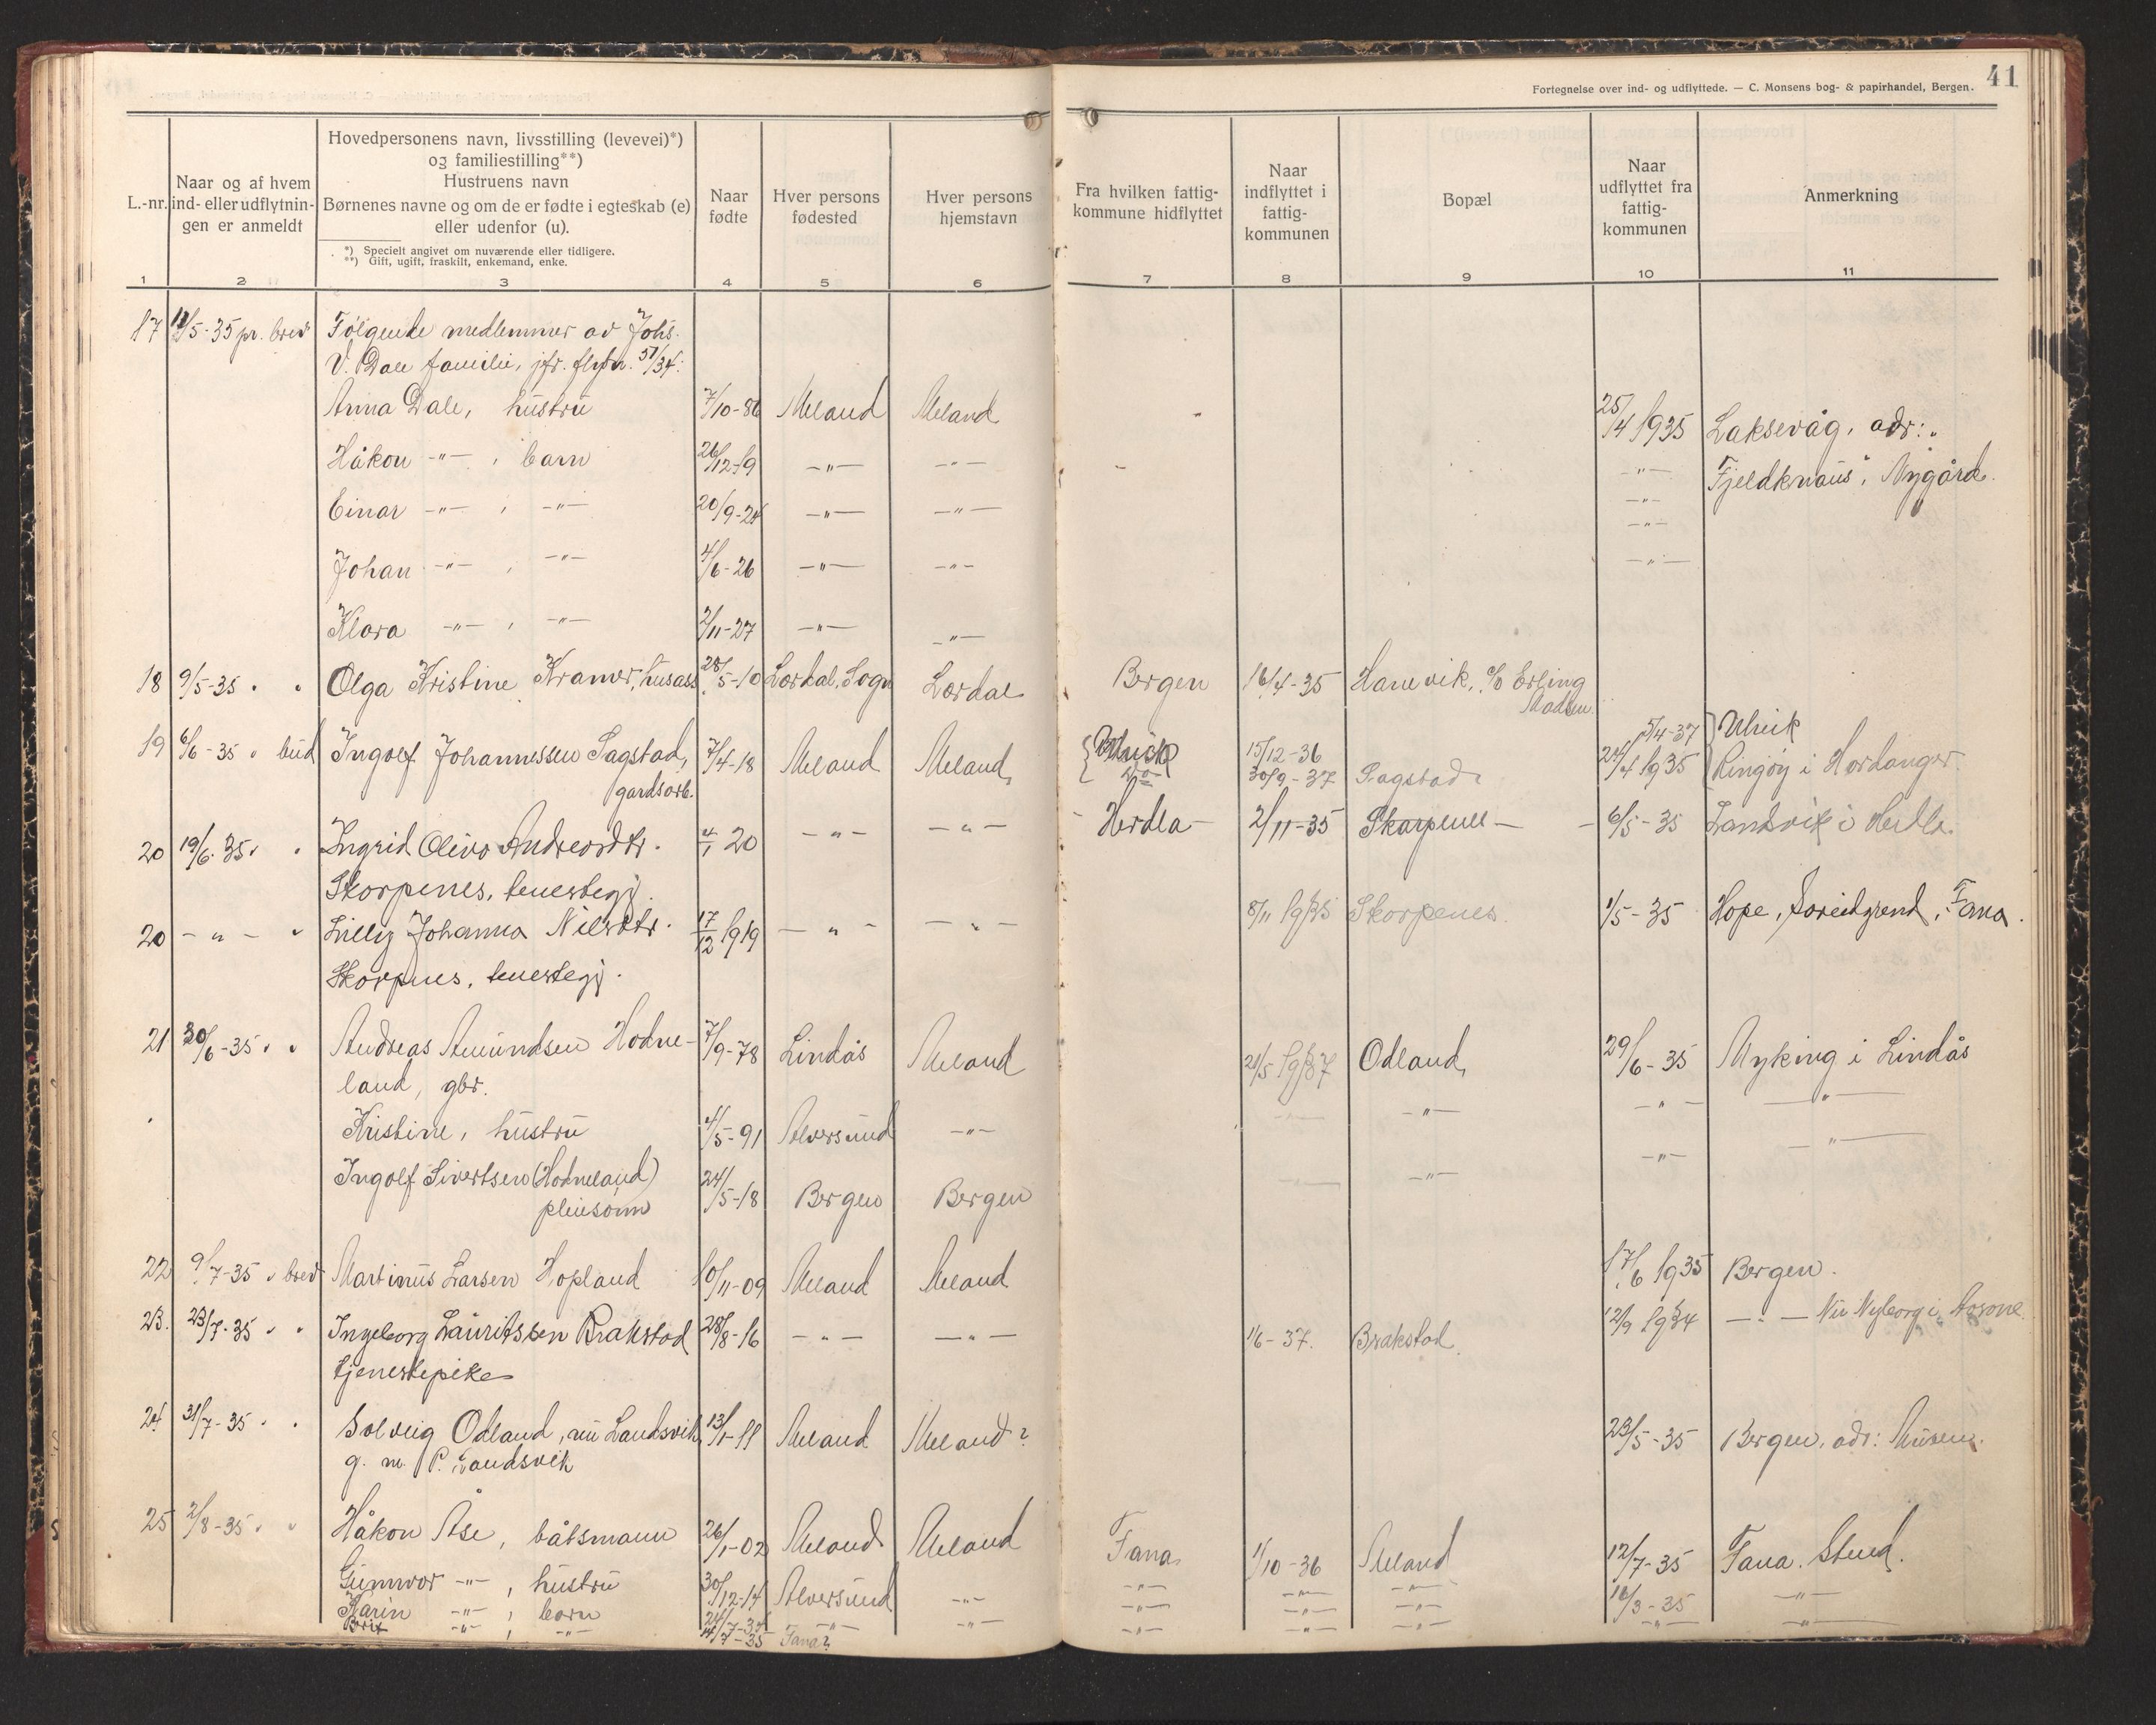 41
Fortegnelse over ind- og udflyttede. — C. Monsens bog- & papirhandel, Bergen.
L.-nr.
Naar og af hvem ind- eller udflytningen er anmeldt
Hovedpersonens navn, livsstilling (levevei)*)
og familiestilling**)
Hustruens navn
Børnenes navne og om de er fødte i egteskab (e)
eller udenfor (u).
*) Specielt angivet om nuværende eller tidligere.
**) Gift, ugift, fraskilt, enkemand, enke.
Naar fødte
Hver persons fødested
Hver persons hjemstavn
Fra hvilken fattig-kommune hidflyttet
Naar indflyttet i fattig-kommunen
Bopæl
Naar udflyttet fra fattig-kommunen
Anmerkning
1 2 3 4 5 6 7 8 9 10 11
17 /5-35 pr. brev Følgende medlemmer av Johs.
V. Dale familie, jfr. flytn. 51/34:
Anna Dale, hustru 7/10-86 Meland Meland 25/4 1935 Laksevåg, adr: "
Håkon -"- , barn 26/12-19 -"- -"- -"- Fjeldknaus", Nygård.
Einar -"- , -"- 20/9-24 -"- -"- -"-
-"-
Johan -"- , -"- 4/6-26 -"- -"- -"-
Klara -"- , -"- 2/11-27 -"- -"-
18 9/5-35 " " Olga Kristine Kramer, husass. 28/5-10 Lærdal, Sogn Lærdal Bergen 16/4-35 Hanevik, c/o Erling
Madsen.
19 6/6-35 " bud Ingolf Johannessen Sagstad, 7/4-18 Meland Meland Ulvik 15/12-36 5/4-37 Ulvik
gardsarb. 30/9-37 Sagstad 24/4 1935 Ringøy i Hardanger.
20 19/6-35 " " Ingrid Olivo Andreasdtr. 4/1 20 -"- -"- Herdla 2/11-35 Skarpenes 6/5-35 Landsvik i Herdla.
Skorpenes, tenestegj.
20 -"- " Lilly Johanna Nilsdtr. 17/12 1919 -"- -"- 8/11 1935 Skorpenes. 1/5-35 Hope, Søreidgrend, Fana.
Skorpnes, tenestegj.
21 30/6-35 " " Andreas Amundsen Hodne- 7/9-78 Lindås Meland 21/5 1937 Odland, 29/6-35 Myking i Lindås
land, gbr. -"- -"- -"-
Kristine, hustru 4/5-91 Alversund -"- -"- -"-
Ingolf Sivertsen (Hodneland) 24/5-18 Bergen Bergen -"-
pleiesønn
22 9/7-35 " brev Martinus Larsen Hopland 10/11-09 Meland Meland 17/6 1935 Bergen.
23. 23/7-35 " " Ingeborg Lauritssen Brakstad 28/8-16 -"- -"- 1/6-37. Brakstad. 12/9 1934 -"- Nu Nyborg i Åsane.
tjenestepike
24 31/7-35 " " Solveig Odland, nu Landsvik, 13/1-11 Meland Meland? 23/5-35 Bergen, adr:
g. m. P. Landsvik
25 2/8-35 " " Håkon Åse, båtsmann 26/1-02 Meland Meland Fana 1/10-36 Meland 12/7-35 Fana. Stend.
Gunnvor -"- , hustru 30/12-14 Alversund -"- -"- -"- -"- 16/3-35 -"-
Karin -"- , barn 24/7-34 -"- -"- -"- -"- -"- -"- -"-
Brit -"- , -"- 14/7-35 Fana? -"- -"- -"-